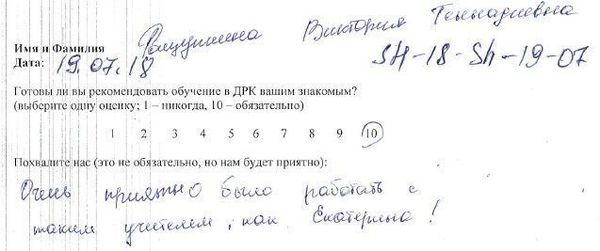 Имя и Фамилия Виктория Геннадиевна
Дата: 19.07.18 SH-18-Sh-19-07
Готовы ли вы рекомендовать обучение в ДРК вашим знакомым?
(выберите одну оценку; 1 – никогда, 10 – обязательно)
1 2 3 4 5 6 7 8 9 10
Похвалите нас (это не обязательно, но нам будет приятно):
Очень приятно было работать с
таким учителем, как Екатерина!